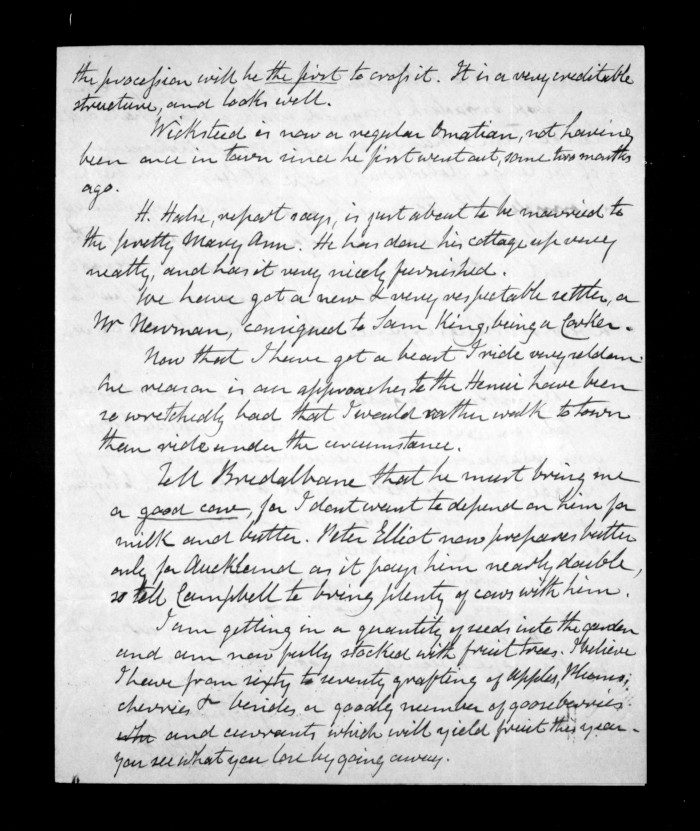 the procession will be the first to cross it. It is a very creditable
structure, and looks well.
Wicksteed is now a regular Omatian, not having
been once in town since he first went out, some two months
ago.
H. Halse, report says, is just about to be married to
the pretty Mary Ann. He has done his cottage up very
neatly, and has it very nicely furnished.
We have got a new & very respectable settler, a
Mr Newman, consigned to Sam King, being a Cocker.
Now that I have got a beast I ride very seldom.
One reason is our approaches to the Henui have been
so wretchedly bad that I would rather walk to town
than ride under the circumstance.
Tell Bredalbane that he must bring me
a good cow, for I dont want to depend on him for
milk and butter. Peter Elliot now prepares butter
only for Auckland as it pays him nearly double,
so tell Campbell to bring plenty of cows with him.
I am getting in a quantity of seeds into the garden
and am now fully stocked with fruit trees. I believe
I have from sixty to seventy grafting of apples, Plums,
cherries & besides a goodly number of gooseberries
and currants which will yield fruit this year.
You see what you lose by going away.